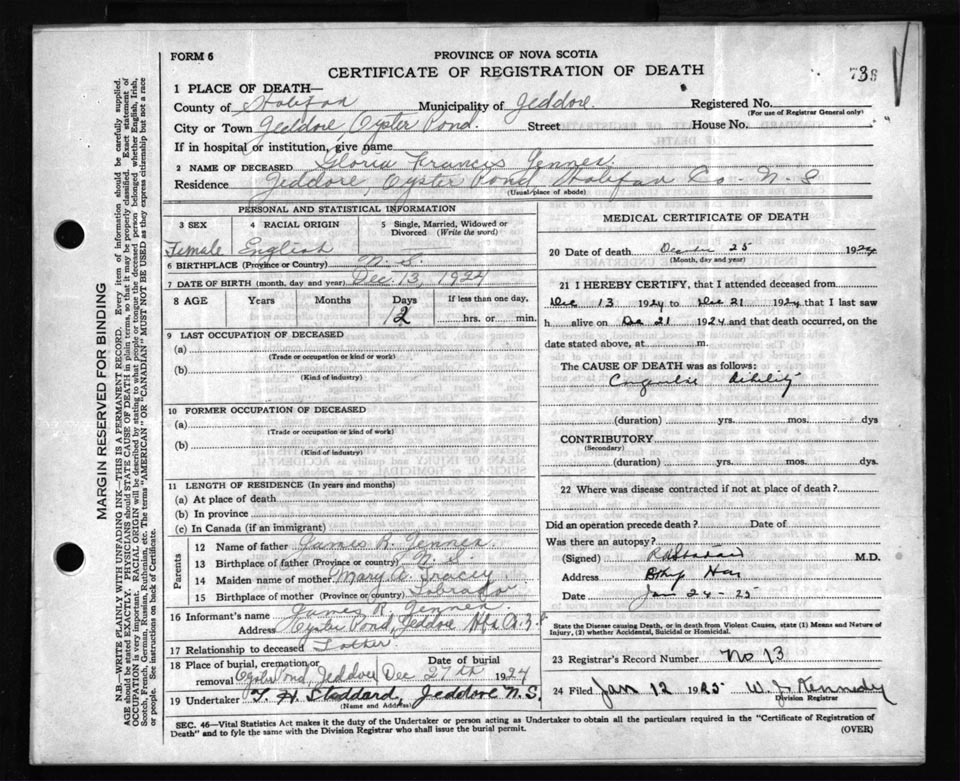 FORM 6
PROVINCE OF NOVA SCOTIA
CERTIFICATE OF REGISTRATION OF DEATH
738
1 PLACE OF DEATH—
County of Halifax Municipality of Jeddore. Registered No.
(For use of Registrar General only)
City or Town Jeddore, Oyster Pond. Street House No.
If in hospital or institution, give name
2 NAME OF DECEASED Gloria Francis Jennex.
Residence Jeddore, Oyster Pond, Halifax Co - N - S
(Usual place of abode)
PERSONAL AND STATISTICAL INFORMATION
3 SEX 4 RACIAL ORIGIN 5 Single, Married, Widowed or Divorced (Write the word)
Female English
6 BIRTHPLACE (Province or Country) N. S.
7 DATE OF BIRTH (month, day, and year) Dec. 13, 1924
8 AGE Years Months Days If less than one day,
12 hrs. or min.
9 LAST OCCUPATION OF DECEASED
(a)
(Trade or occupation or kind or work)
(b)
(Kind of industry)
10 FORMER OCCUPATION OF DECEASED
(a)
(Trade or occupation or kind of work)
(b)
(Kind of industry)
11 LENGTH OF RESIDENCE (In years and months)
(a) At place of death
(b) In province
(c) In Canada (if an immigrant)
Parents
12 Name of father James R. Jennex.
13 Birthplace of father (Province or country) N. S.
14 Maiden name of mother Mary A. Tracey
15 Birthplace of mother (Province or country) Labrador
16 Informant's name James R, Jennex
Address Oyster Pond, Jeddore Hfx Co. N. S
17 Relationship to deceased Father
18 Place of burial, cremation or removal Oyster Pond, Jeddore Date of burial Dec 27th 1924
19 Undertaker T. H. Stoddard, Jeddore N. S,
(Name and Address)
MEDICAL CERTIFICATE OF DEATH
20 Date of death 25 1924
(Month, day and year)
21 I HEREBY CERTIFY, that I attended deceased from
Dec 13 1924 to Dec 21 1924 that I last saw
h alive on Dec 21 1924 and that death occurred, on the
date stated above, at m.
The CAUSE OF DEATH was as follows:
debility
(duration) yrs. mos. dys
CONTRIBUTORY
(Secondary)
(duration) yrs. mos. dys.
22 Where was disease contracted if not at place of death?
Did an operation precede death? Date of
Was there an autopsy?
(Signed) M.D.
Address
Date Jan 24 - 25
State the Disease causing Death, or in death from Violent Causes, state (1) Means and Nature of
Injury, (2) whether Accidental, Suicidal or Homicidal.
23 Registrar's Record Number No 13
24 Filed Jan 12 1925 W. J. Kennedy
Division Registrar
SEC. 46—Vital Statistics Act makes it the duty of the Undertaker or person acting as Undertaker to obtain all the particulars required in the "Certificate of Registration of
Death" and to fyle the same with the Division Registrar who shall issue the burial permit. (OVER)
MARGIN RESERVED FOR BINDING
N.B.—WRITE PLAINLY WITH UNFADING INK—THIS IS A PERMANENT RECORD. Every item of information should be carefully supplied.
AGE should be stated EXACTLY. PHYSICIANS should STATE CAUSE OF DEATH in plain terms, so that it may be properly classified. Exact statement of
OCCUPATION is very important. RACIAL ORIGIN will be described by stating to what people or tongue the deceased person belonged whether English, Irish,
Scotch, French, German, Russian, Ruthenian, etc. The terms "AMERICAN" OR "CANADIAN" MUST NOT BE USED as they express citizenship but not a race
or people. See instructions on back of Certificate.